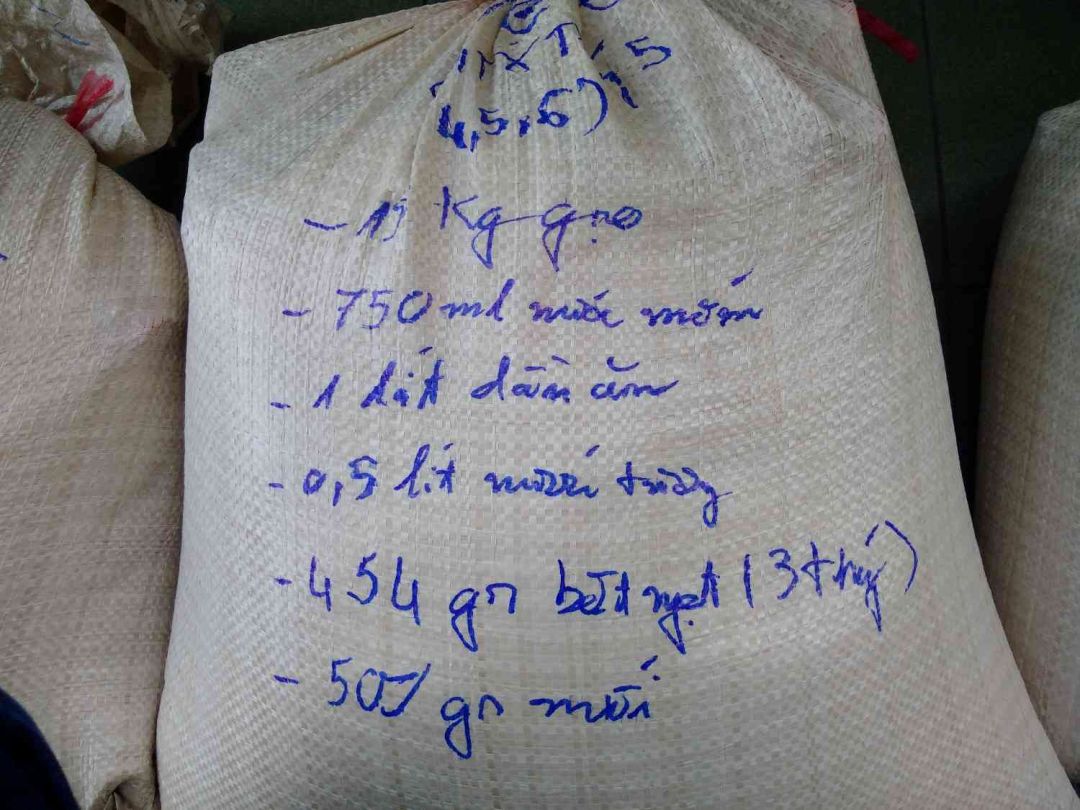 4,5,6)
- 15 Kg gạo
- 750 ml nước mắm
- 1 lít dầu ăn
- 0,5 lít nước tương
- 454 gr bột ngọt (3 thùy)
- 500 gr muối